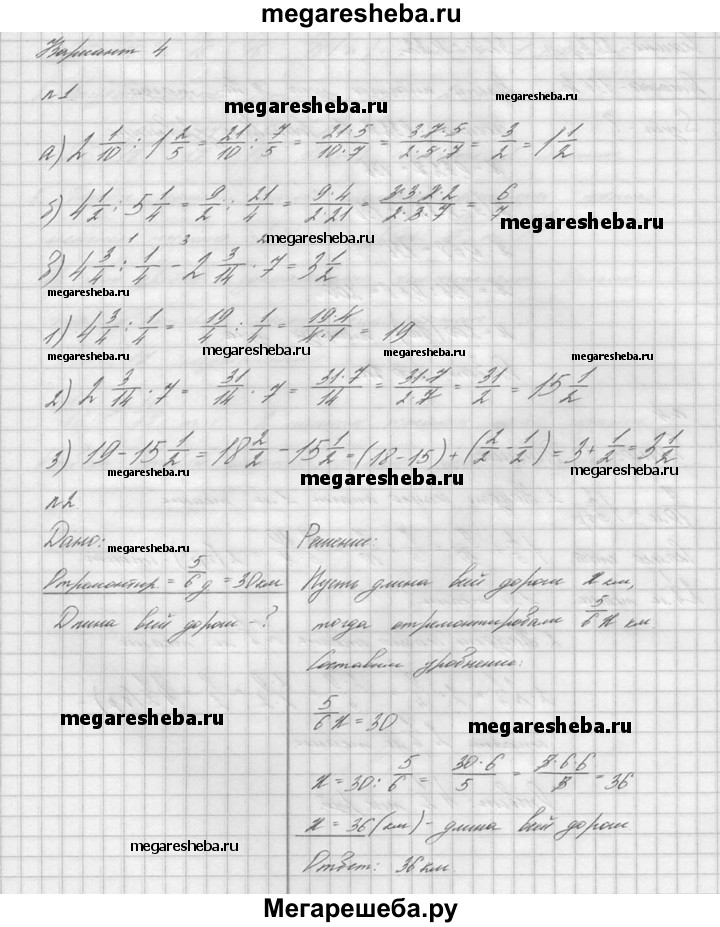 megaresheba.ru
Вариант 4
megaresheba.ru
n1
megaresheba.ru
а) 2 1/10 : 1 2/5 = 21/10 : 7/5 = 21·5/10·7 = 3·7·5/2·5·7 = 3/2 = 1 1/2
б) 4 1/2 : 5 1/4 = 9/2 : 21/4 = 9·4/2·21 = 3·3·2·2/2·3·7 = 6/7
megaresheba.ru
megaresheba.ru
в) 4 3/4 : 1/4 - 2 3/14 · 7 = 3 1/2
megaresheba.ru
1) 4 3/4 : 1/4 = 19/4 : 1/4 = 19·4/4·1 = 19
megaresheba.ru
megaresheba.ru
megaresheba.ru
2) 2 3/14 · 7 = 31/14 · 7 = 31·7/14 = 31·7/2·7 = 31/2 = 15 1/2
3) 19 - 15 1/2 = 18 2/2 - 15 1/2 = (18 - 15) + (2/2 - 1/2) = 3 + 1/2 = 3 1/2
megaresheba.ru
megaresheba.ru
megaresheba.ru
n2
Дано:
Отремонтир. = 5/6 д = 30 км
Длина всей дороги - ?
megaresheba.ru
megaresheba.ru
megaresheba.ru
Решение:
Пусть длина всей дороги x км,
тогда отремонтировали 5/6 x км
megaresheba.ru
Составим уравнение:
5/6 x = 30
megaresheba.ru
x = 30 : 5/6 = 30·6/5 = 5·6·6/5 = 36
megaresheba.ru
x = 36 (км) - длина всей дороги
Ответ: 36 км.
Мегарешеба.ру